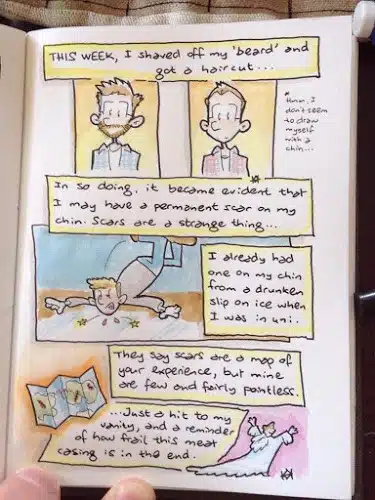 THIS WEEK, I shaved off my 'beard' and
got a haircut...
* Hmm, I
don't seem
to draw
myself
with a
chin...
In so doing, it became evident that
I may have a permanent scar on my
chin. Scars are a strange thing...
I already had
one on my chin
from a drunken
slip on ice when
I was in uni.
They say scars are a map of
your experience, but mine
are few and fairly pointless.
...Just a hit to my
vanity, and a reminder
of how frail this meat
casing is in the end.